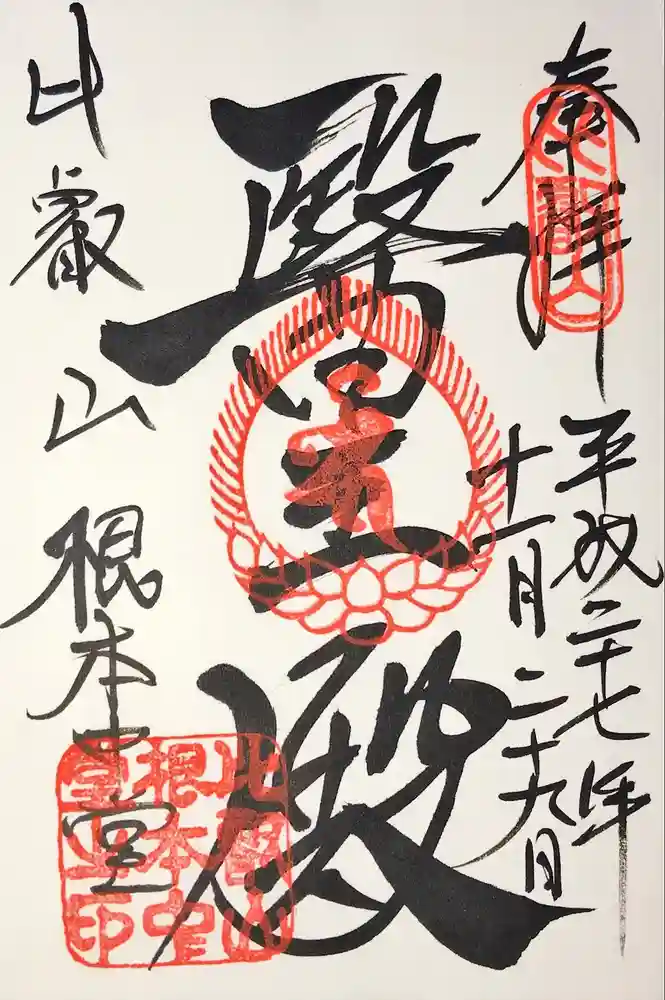 奉拝
平成二十七年
十一月二十九日
醫王殿
比叡山 根本中堂
比叡山
比叡山
根本中
堂之印